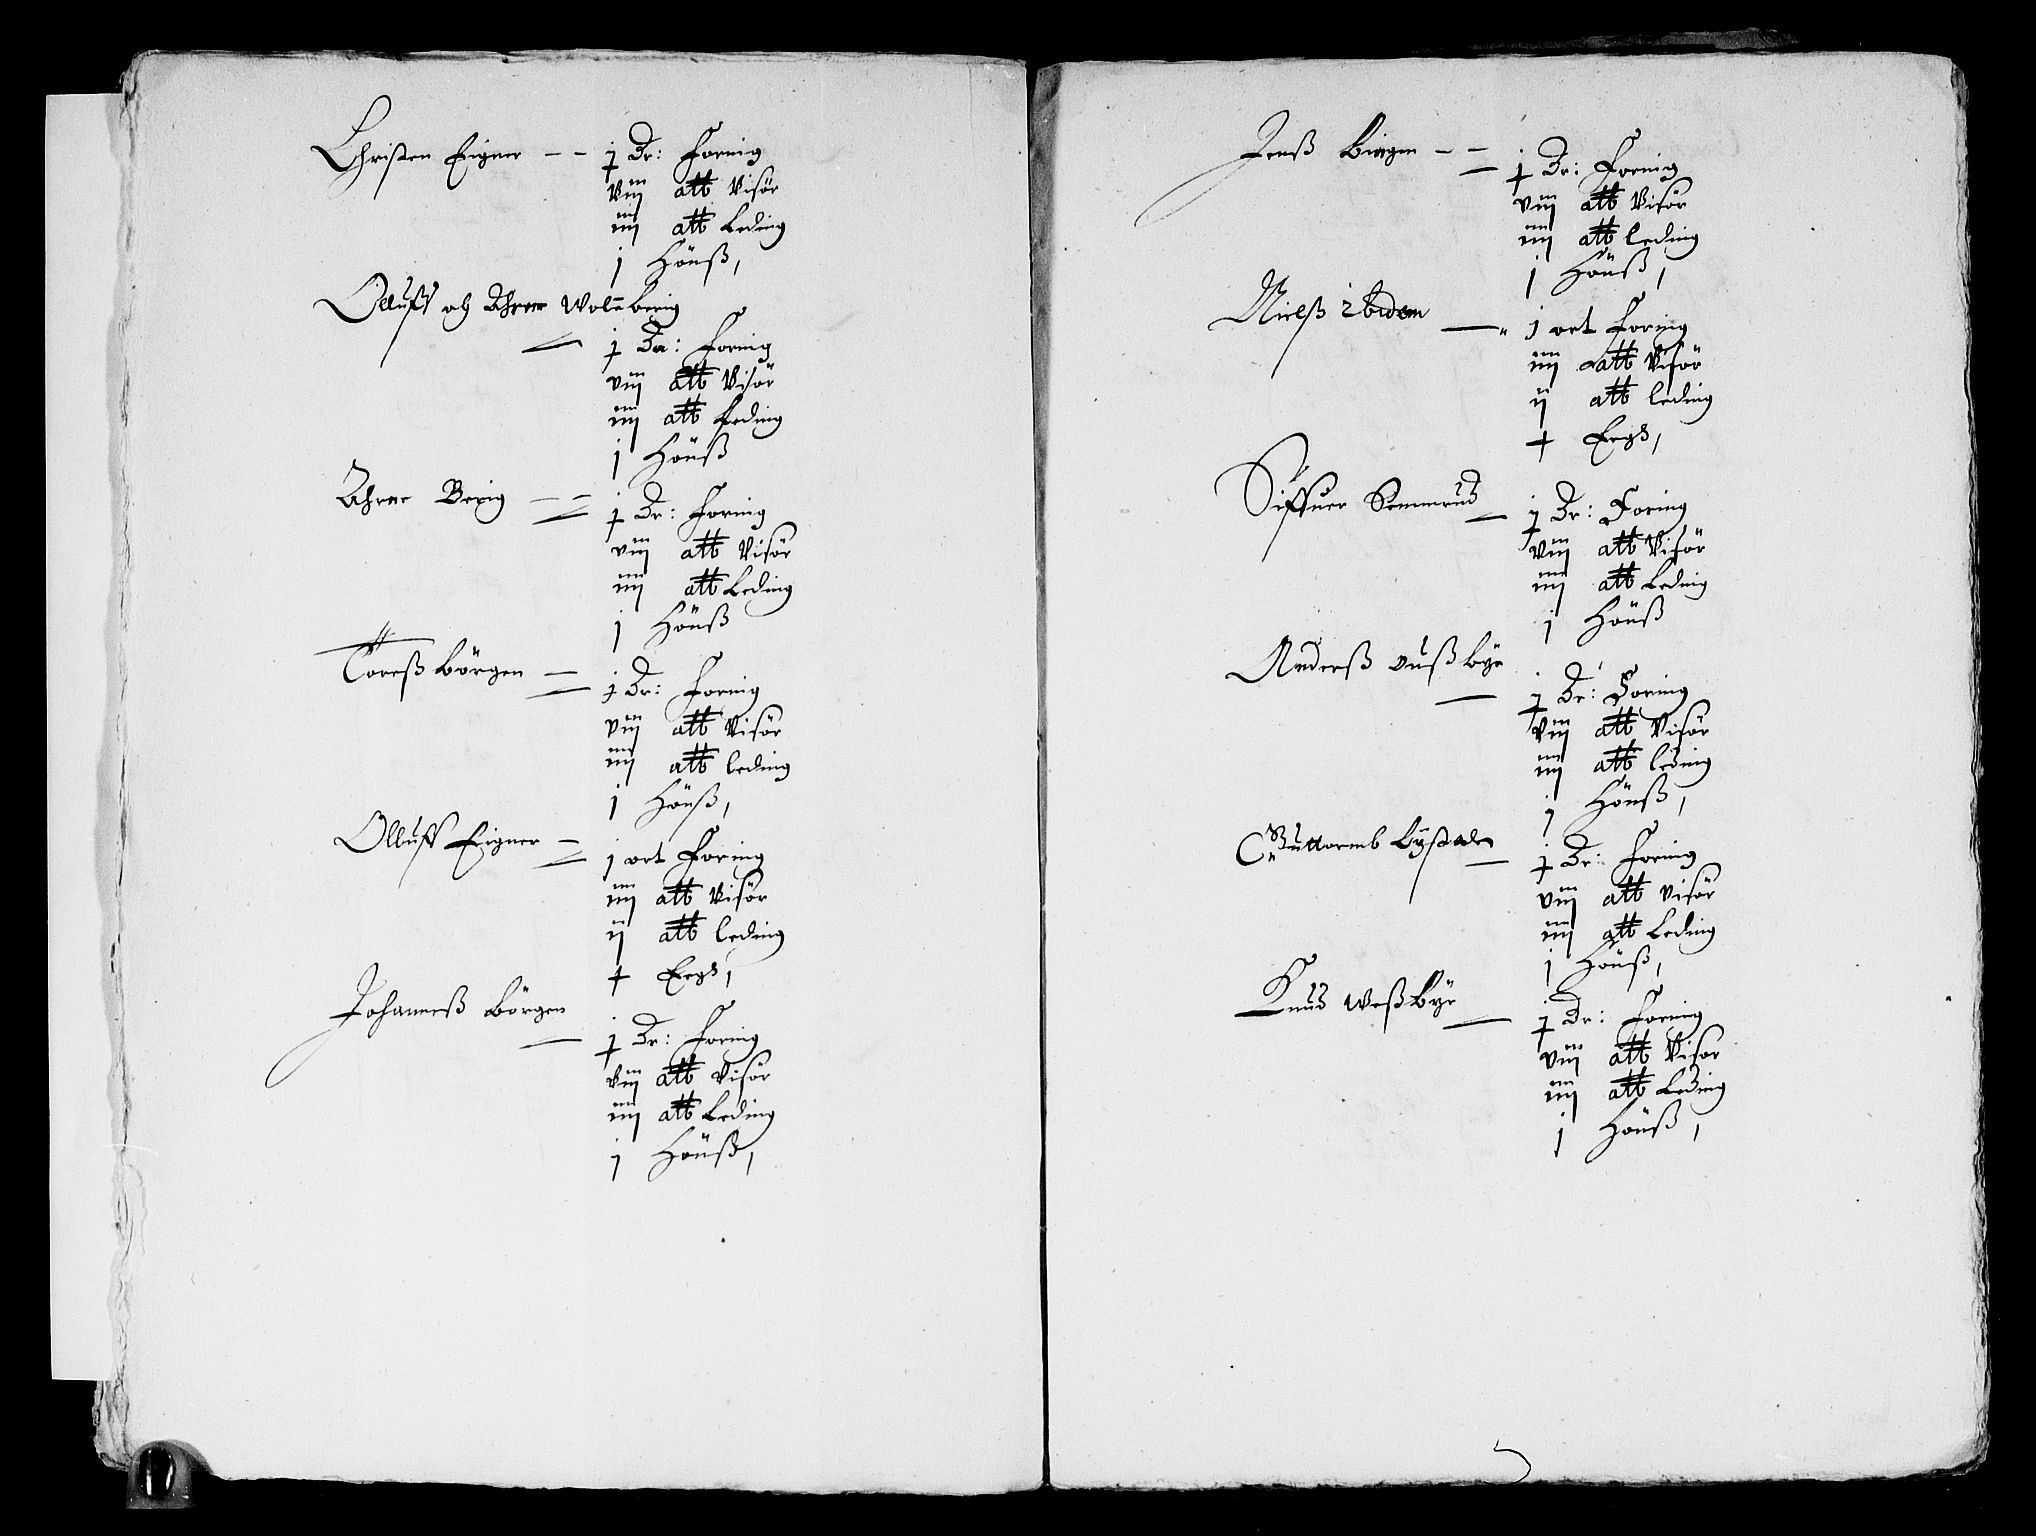 Christen Eigner – – j Dr: Foring
viij att Visör
iiij att Leding
j Hönß,
Olluff och Ahrne Wolberig
j Dr: Foring
viij att Visör
iiij att Leding
j Hönß
Ahrne Berig – –
j Dr: Foring
viij att Visör
iiij att Leding
j Hönß
Toreß Börgen –
j Dr: Foring
viij att Visör
iiij att leding
j Hönß,
Olluff Eigner –
j ort Foring
iiij att Visör
ij att leding
+ Eegh,
Johanneß Börgen
j Dr: Foring
viij att Visör
iiij att Leding
j Hönß,
Jenß Biørgen – –
j Dr: Foring
viij att Visör
iiij att leding
j Hönß,
Nielß ibidem
j ort Foring
iiij att Visör
ij att leding
+ Eegh,
Siffuer Semmerud
j Dr: Foring
viij att Visör
iiij att Leding
j Hönß
Anderß oußbye
j Dr: Foring
viij att Visör
iiij att leding
j Hönß,
Guttormb Byestad
j Dr: Foring
viij att visör
iiij att Leding
j Hönß,
Knud Weßbye
j Dr: Foring
viij att Visör
iiij att Leding
j Hönß,